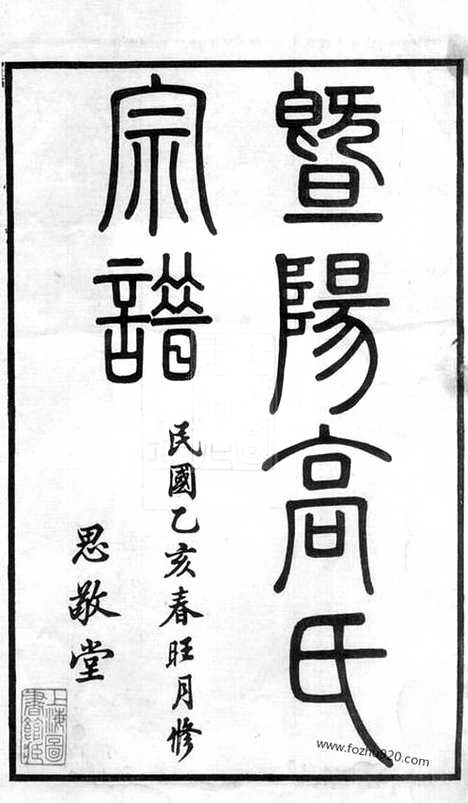 暨陽高氏
宗譜
民國乙亥春旺月修
思敬堂
上海圖
書館藏
www.fozhu920.com